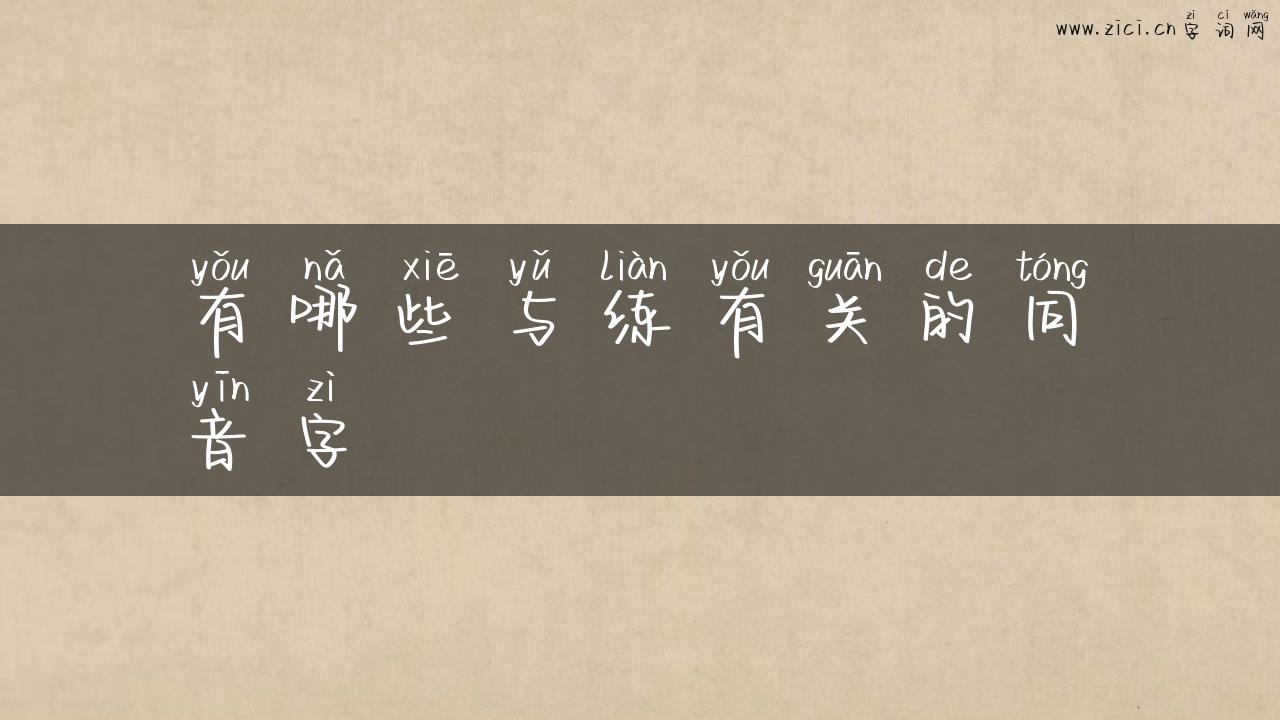 zì cí wǎng
www.zici.cn 字词网
yǒu nǎ xiē yǔ liàn yǒu guān de tóng
有哪些与练有关的同
yīn zì
音字